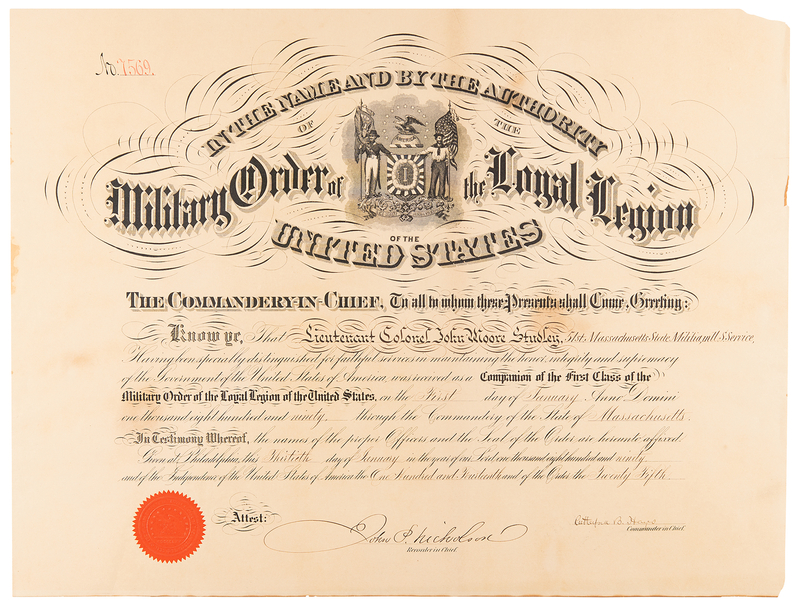 No. 7569.
IN THE NAME AND BY THE AUTHORITY
OF THE
Military Order of the Loyal Legion
OF THE
UNITED STATES
THE COMMANDERY-IN-CHIEF, To all to whom these Presents shall Come, Greeting:
Know ye, That Lieutenant Colonel John Moore Studley, 51st. Massachusetts State Militia in U.S. Service,
Having been specially distinguished for faithful services in maintaining the honor, integrity and supremacy
of the Government of the United States of America, was received as a Companion of the First Class of the
Military Order of the Loyal Legion of the United States, on the First day of January Anno Domini
one thousand eight hundred and ninety through the Commandery of the State of Massachusetts.
In Testimony Whereof, the names of the proper Officers and the Seal of the Order are hereunto affixed.
Given at Philadelphia, this Thirtieth day of January in the year of our Lord one thousand eight hundred and ninety
and of the Independence of the United States of America the One hundred and Fourteenth and of the Order the Twenty Fifth.
Attest:
John P. Nicholson
Recorder in Chief.
Rutherford B. Hayes
Commander in Chief.